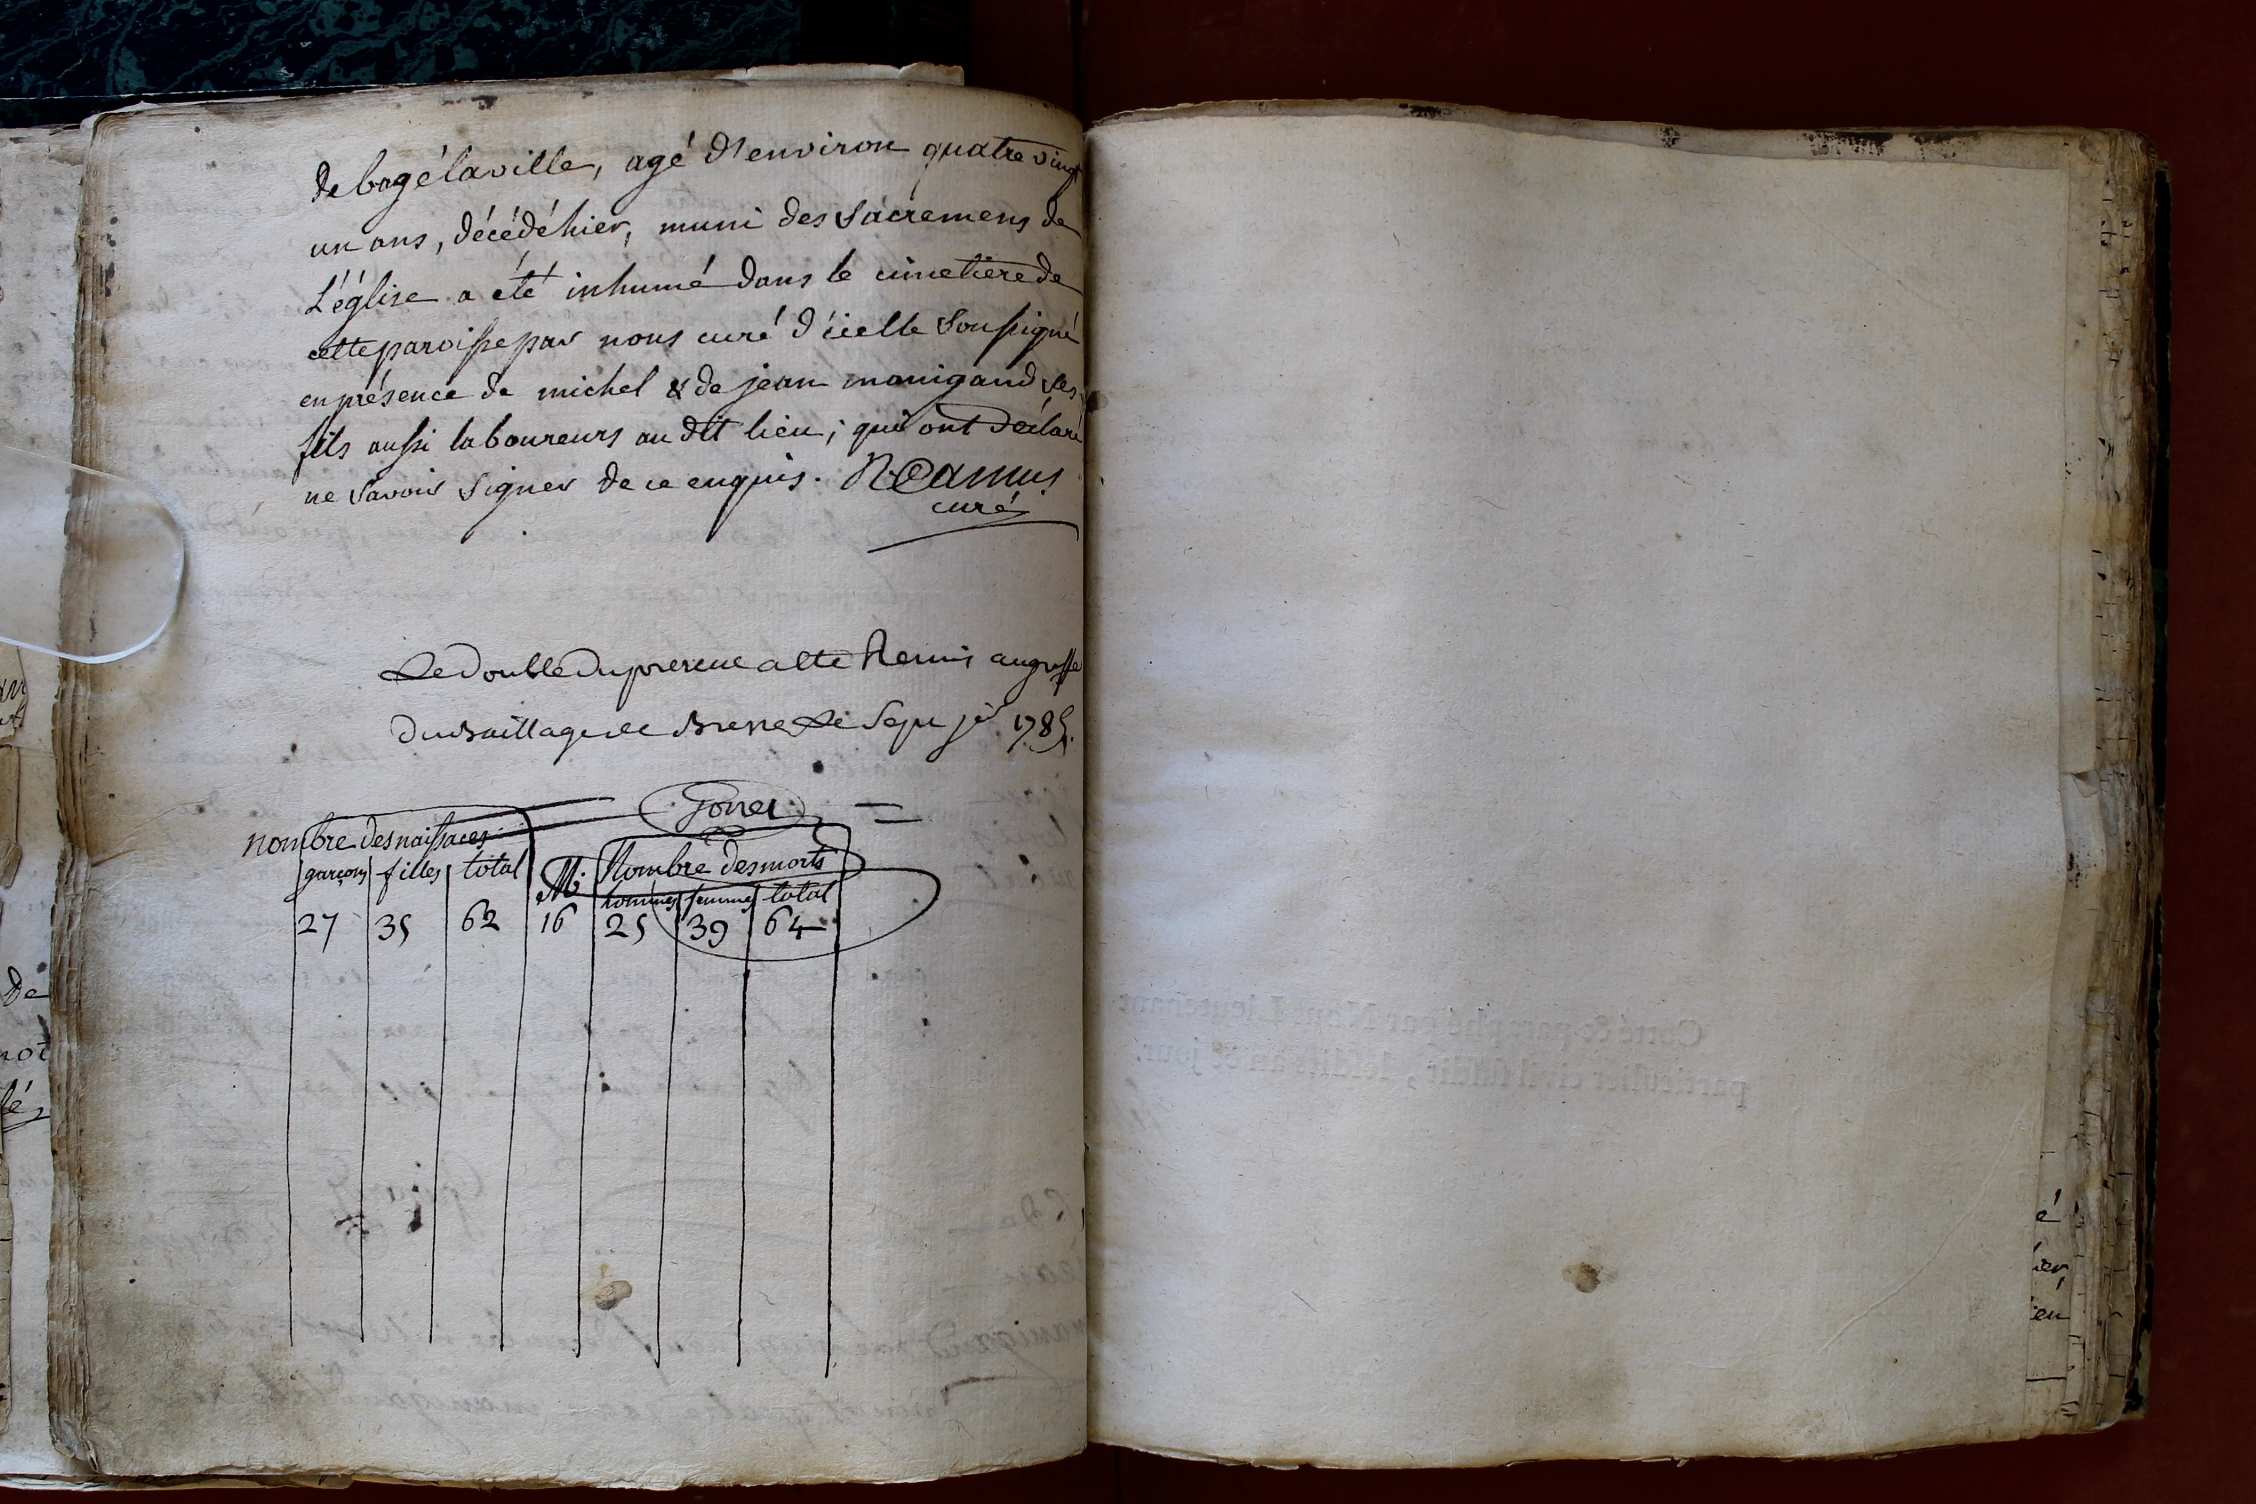 de bagélaville, agé d'environ quatre vingt
un ans, décédé hier, muni des sacremens de
L'église a été inhumé dans le cimetiere de
cette paroisse par nous curé d'icelle soussigné
en présence de michel & de jean manigand ses
fils aussi laboureurs au dit lieu; qui ont déclaré
ne savoir signer de ce enquis. N Camus
curé
Le double du present a été Remis au greffe
du Baillage de Bresse Le Sept jer 1785.
nombre des naissaces
garçons filles total
M. Nombre des morts
hommes femmes total
27 35 62 16 25 39 64
Cotté & paraphé par Nous Lieutenant
particulier civil susdit, lesdits an & jour.
De
é
ier,
ieu